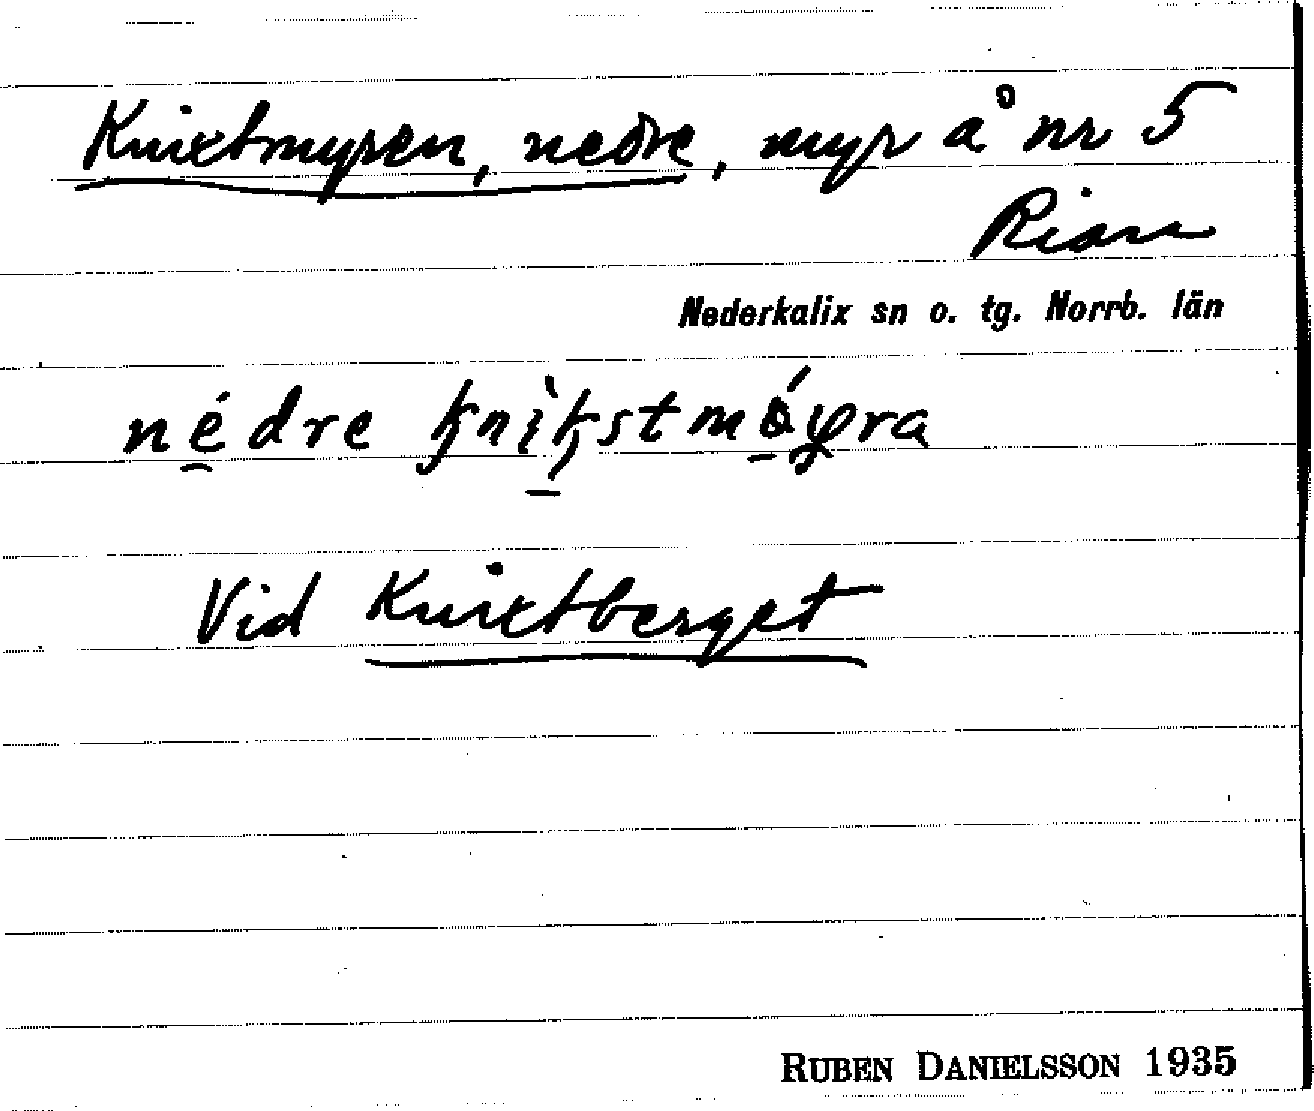 Knixtmyren, nedre, myr å nr 5
Rian
Nederkalix sn o. tg. Norrb. län
nédre
Vid Knixtberget
RUBEN DANIELSSON 1935